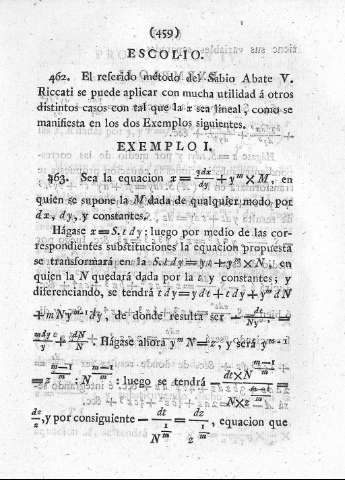 (459)
ESCOLIO.
462. El referido método del Sabio Abate V.
Riccati se puede aplicar con mucha utilidad á otros
distintos casos con tal que la x sea lineal, como se
manifiesta en los dos Exemplos siguientes.
EXEMPLO I.
463. Sea la equacion x = ydx/dy + y^m × M, en
quien se supone la M dada de qualquier modo por
dx, dy, y constantes.
Hágase x = S. t dy; luego por medio de las cor-
respondientes substituciones la equacion propuesta
se transformará en la S. t dy = yt + y^m × N, en
quien la N quedará dada por la t y constantes; y
diferenciando, se tendrá t dy = y dt + t dy + y^m dN
+ mN y^(m-1) dy, de donde resulta ser − dt/Ny^(m-1) =
mdy/y + dN/N. Hágase ahora y^m N = z, y será y^(m-1)
= z^((m-1)/m) : N^((m-1)/m) : luego se tendrá −
=
dz/z, y por consiguiente − dt/N^(1/m) = dz/z^(1/m), equacion que